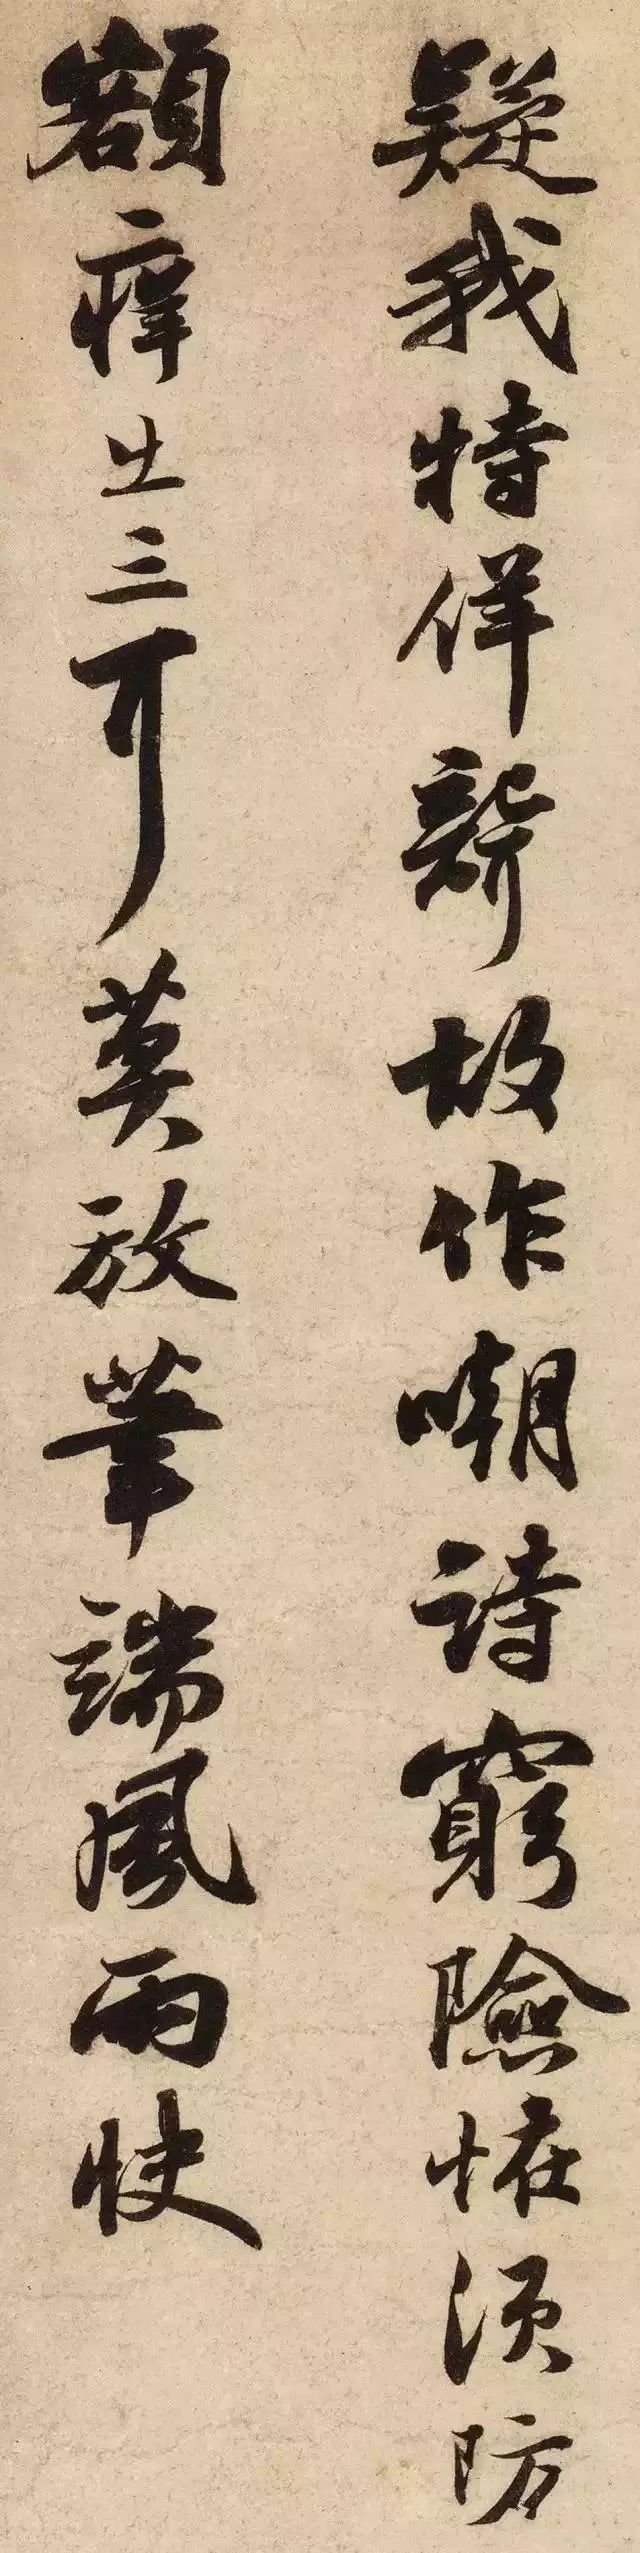 疑我特佯聾故作嘲詩窮險恠湏防
額痒出三耳莫放筆端風雨快